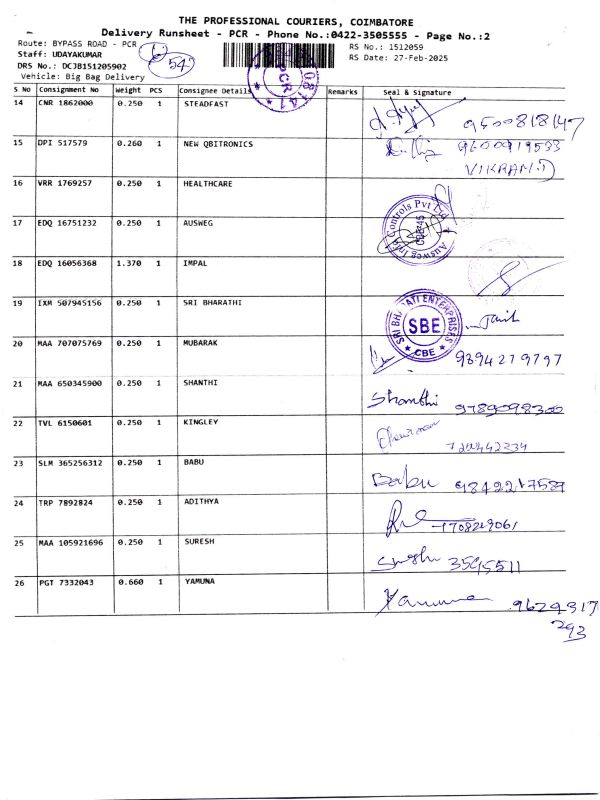 THE PROFESSIONAL COURIERS, COIMBATORE
Delivery Runsheet - PCR - Phone No.:0422-3505555 - Page No.:2
Route: BYPASS ROAD - PCR
RS No.: 1512059
Staff: UDAYAKUMAR
RS Date: 27-Feb-2025
DRS No.: DCJB151205902
Vehicle: Big Bag Delivery
6
547
PCR
S No Consignment No Weight PCS Consignee Details Remarks Seal & Signature
14 CNR 1862000 0.250 1 STEADFAST 9500818147
15 DPI 517579 0.260 1 NEW QBITRONICS 9600919533
VIKRAM.D
16 VRR 1769257 0.250 1 HEALTHCARE
17 EDQ 16751232 0.250 1 AUSWEG
Controls Pvt Ltd
18 EDQ 16056368 1.370 1 IMPAL
19 IXM 507945156 0.250 1 SRI BHARATHI
SRI BHARATI ENTERPRISES
SBE
CBE
20 MAA 707075769 0.250 1 MUBARAK 9394279797
21 MAA 650345900 0.250 1 SHANTHI Shanthi 9789098300
22 TVL 6150601 0.250 1 KINGLEY
23 SLM 365256312 0.250 1 BABU Babu 9842217589
24 TRP 7892824 0.250 1 ADITHYA
25 MAA 105921696 0.250 1 SURESH 3595511
26 PGT 7332043 0.660 1 YAMUNA Yamuna 9629317
293